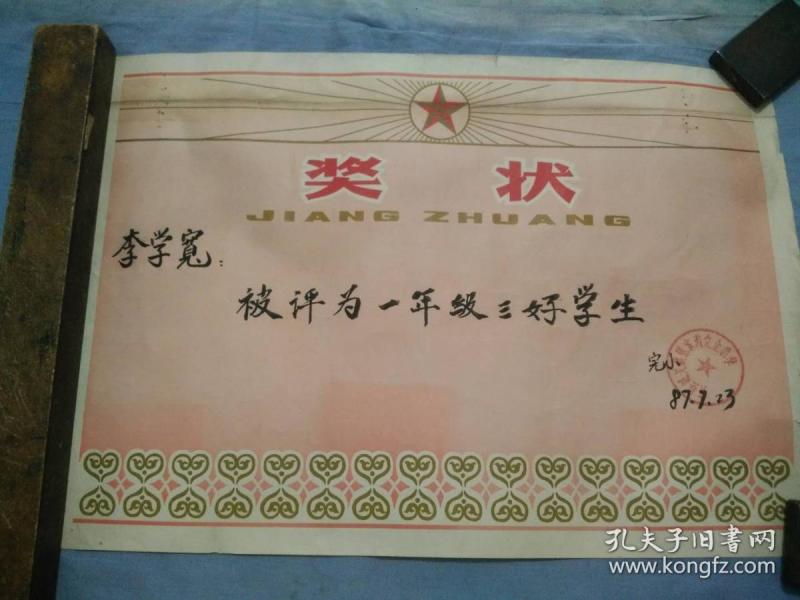 奖 状
JIANG ZHUANG
李学寬：
被评为一年级三好学生
完小
87.7.23
孔夫子旧书网
www.kongfz.com